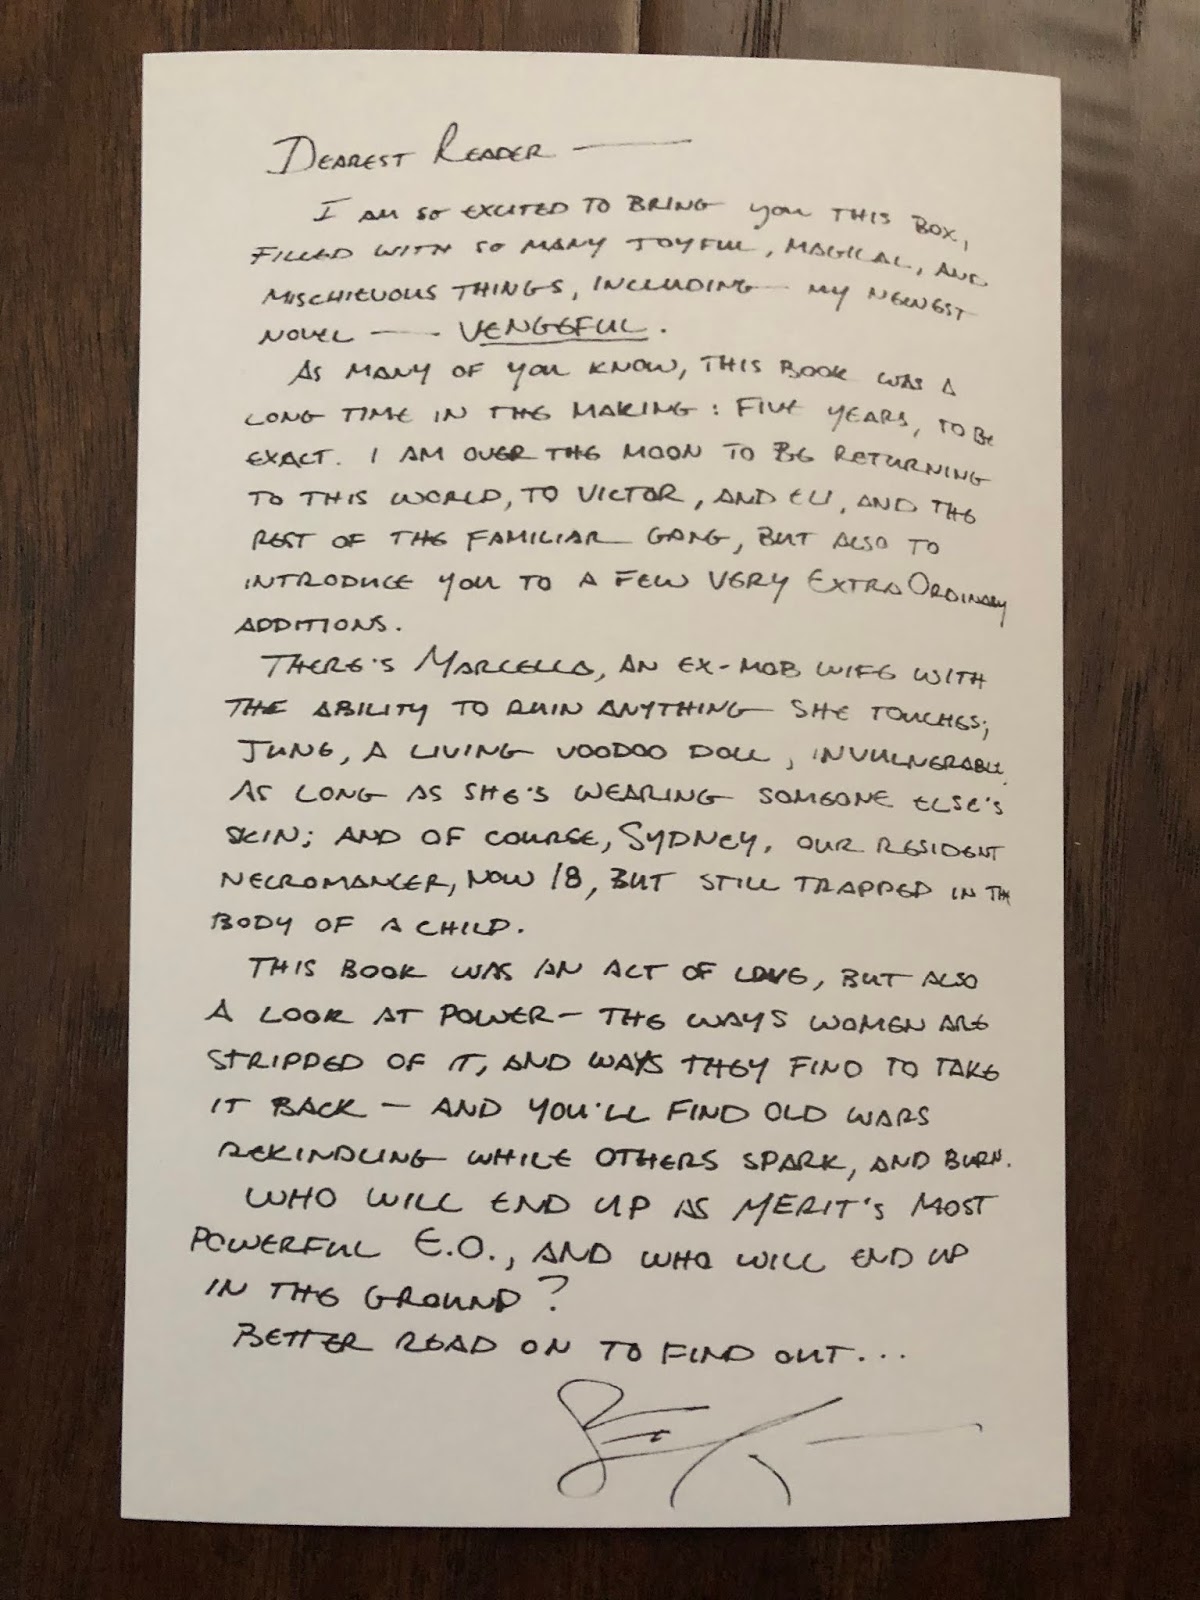 DEAREST READER —
I AM SO EXCITED TO BRING YOU THIS BOX,
FILLED WITH SO MANY JOYFUL, MAGICAL, AND
MISCHIEVOUS THINGS, INCLUDING MY NEWEST
NOVEL — VENGEFUL.
AS MANY OF YOU KNOW, THIS BOOK WAS A
LONG TIME IN THE MAKING: FIVE YEARS, TO BE
EXACT. I AM OVER THE MOON TO BE RETURNING
TO THIS WORLD, TO VICTOR, AND ELI, AND THE
REST OF THE FAMILIAR GANG, BUT ALSO TO
INTRODUCE YOU TO A FEW VERY EXTRAORDINARY
ADDITIONS.
THERE'S MARCELLA, AN EX-MOB WIFE WITH
THE ABILITY TO RUIN ANYTHING SHE TOUCHES;
JUNE, A LIVING VOODOO DOLL, INVULNERABLE
AS LONG AS SHE'S WEARING SOMEONE ELSE'S
SKIN; AND OF COURSE, SYDNEY, OUR RESIDENT
NECROMANCER, NOW 18, BUT STILL TRAPPED IN TH
BODY OF A CHILD.
THIS BOOK WAS AN ACT OF LOVE, BUT ALSO
A LOOK AT POWER — THE WAYS WOMEN ARE
STRIPPED OF IT, AND WAYS THEY FIND TO TAKE
IT BACK — AND YOU'LL FIND OLD WARS
REKINDLING WHILE OTHERS SPARK, AND BURN.
WHO WILL END UP AS MERIT'S MOST
POWERFUL E.O., AND WHO WILL END UP
IN THE GROUND?
BETTER READ ON TO FIND OUT...